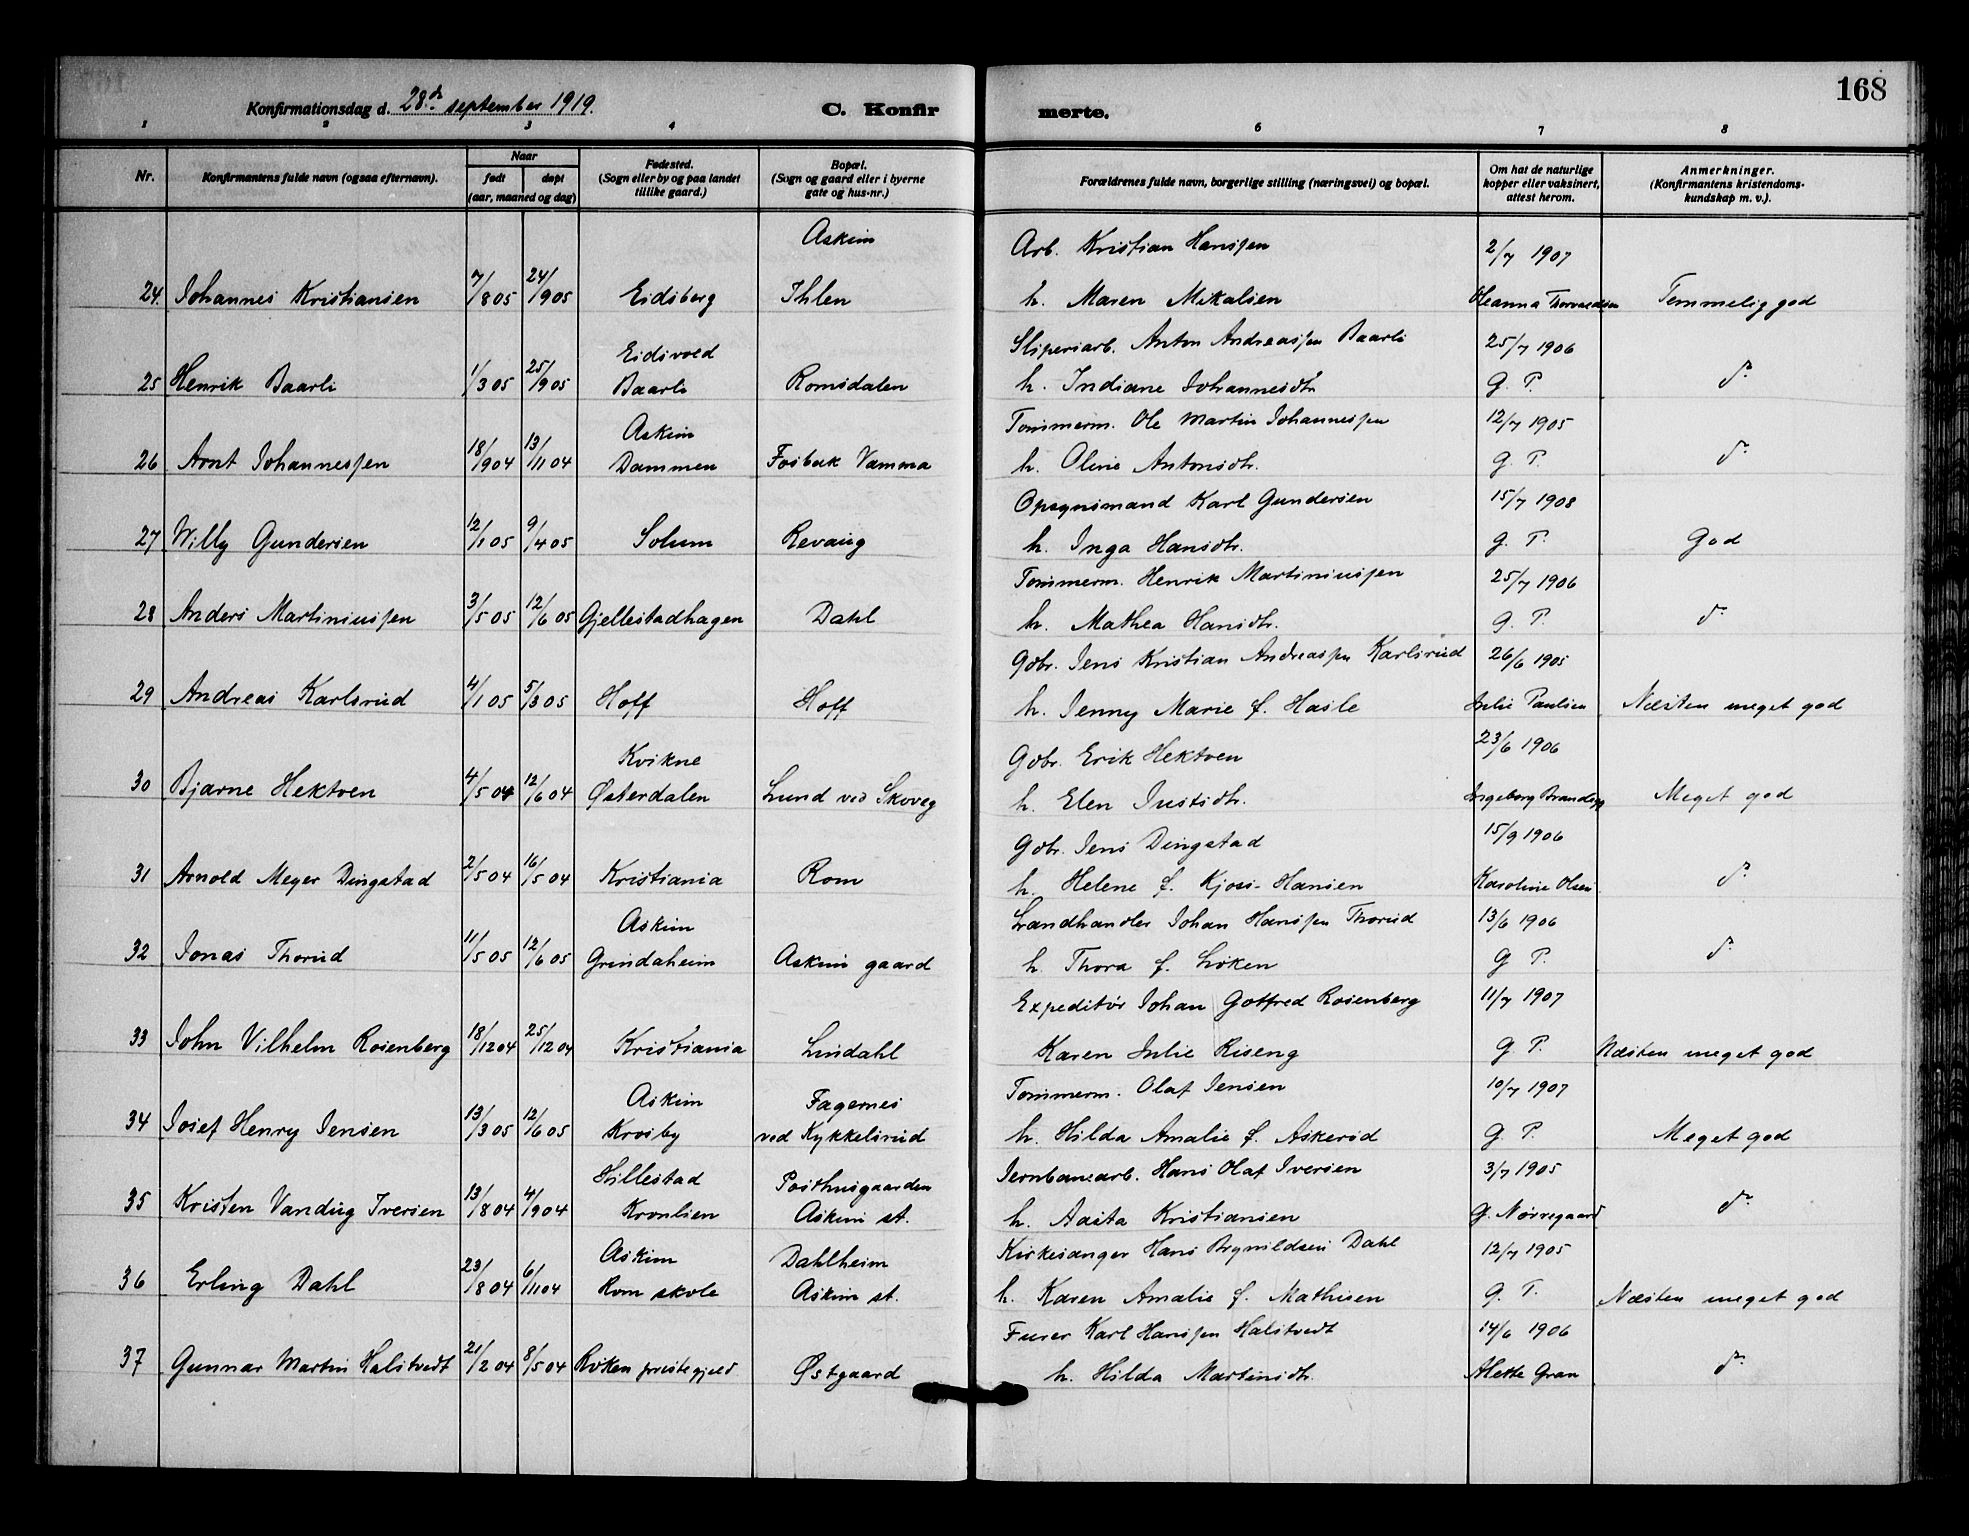 168
Konfirmationsdag d. 28de september 1919.
C. Konfirmerte.
1 2 3 4 6 7 8
Nr.
Konfirmantens fulde navn (ogsaa efternavn).
Naar
født
døpt
(aar, maaned og dag)
Fødested.
(Sogn eller by og paa landet
tillike gaard.)
Bopæl.
(Sogn og gaard eller i byerne
gate og hus-nr.)
Forældrenes fulde navn, borgerlige stilling (næringsvei) og bopæl.
Om hat de naturlige
kopper eller vaksinert,
attest herom.
Anmerkninger.
(Konfirmantens kristendoms-
kundskap m. v.).
Askim Arb. Kristian Hanssen 2/7 1907
24. Johannes Kristiansen 7/8 05 24/9 05 Eidsberg Ihlen h. Maren Mikalsen Oleanna Thorvaldsen Temmelig god
Eidsvold Sliperiarb. Anton Andreassen Baarli 25/7 1906
25 Henrik Baarli 1/3 05 25/9 05 Baarli Romsdalen h. Indiane Johannesdtr. G. P. do
Askim Tømmerm. Ole Martin Johannessen 12/7 1905
26 Arnt Johannessen 18/9 04 13/11 04 Dammen Fosbæk Vamma h. Oline Antonsdtr. G. P. do
Opsynsmand Karl Gundersen 15/7 1908
27 Willy Gundersen 12/1 05 9/4 05 Solum Revaug h. Inga Hansdtr. G. P. God
Tømmerm. Henrik Martiniussen 25/7 1906
28 Anders Martiniussen 3/5 05 12/6 05 Gjellestadhagen Dahl h. Mathea Hansdtr. G. P. do
Gdbr. Jens Kristian Andreassen Karlsrud 26/6 1905
29 Andreas Karlsrud 4/1 05 5/3 05 Hoff Hoff h. Jenny Marie f. Hasle Julie Paulsen Næsten meget god
Kvikne Gdbr. Erik Hektoen 23/6 1906
30 Bjarne Hektoen 4/5 04 12/6 04 Østerdalen Lund ved Skoveg h. Elen Justsdtr. Ingeborg Brandsgg Meget god
Gdbr. Jens Dingstad 15/9 1906
31 Arnold Meyer Dingstad 2/5 04 16/5 04 Kristiania Rom h. Helene f. Kjos-Hansen Karoline Olsen do
Askim Landhandler Johan Hanssen Thorud 13/6 1906
32 Jonas Thorud 11/5 05 12/6 05 Grindaheim Askim gaard h. Thora f. Løken G P. do
Expeditør Johan Gotfred Rosenberg 11/7 1907
33 John Vilhelm Rosenberg 18/12 04 25/12 04 Kristiania Lindahl Karen Julie Riseng G P. Næsten meget god
Askim Fagernes Tømmerm. Olaf Jensen 10/7 1907
34 Josef Henry Jensen 13/3 05 12/6 05 Krosby ved Kykkelsrud h. Hilda Amalie f. Askerød G. P. Meget god
Hillestad Posthusgaarden Jernbanearb. Hans Olaf Iversen 3/7 1905
35 Kristen Vandug Iversen 13/8 04 4/9 04 Kronlien Askim st. h. Aasta Kristiansen G. Nørregaard do
Askim Dahlheim Kirkesanger Hans Brynildsen Dahl 12/7 1905
36 Erling Dahl 23/8 04 6/11 04 Rom skole Askim st. h. Karen Amalie f. Mathisen G. P. Næsten meget god
Furer Karl Hanssen Halstvedt 14/6 1906
37 Gunnar Martin Halstvedt 21/2 04 8/5 04 Røken prestegjeld Østgaard h. Hilda Martinsdtr. Alette Gran do